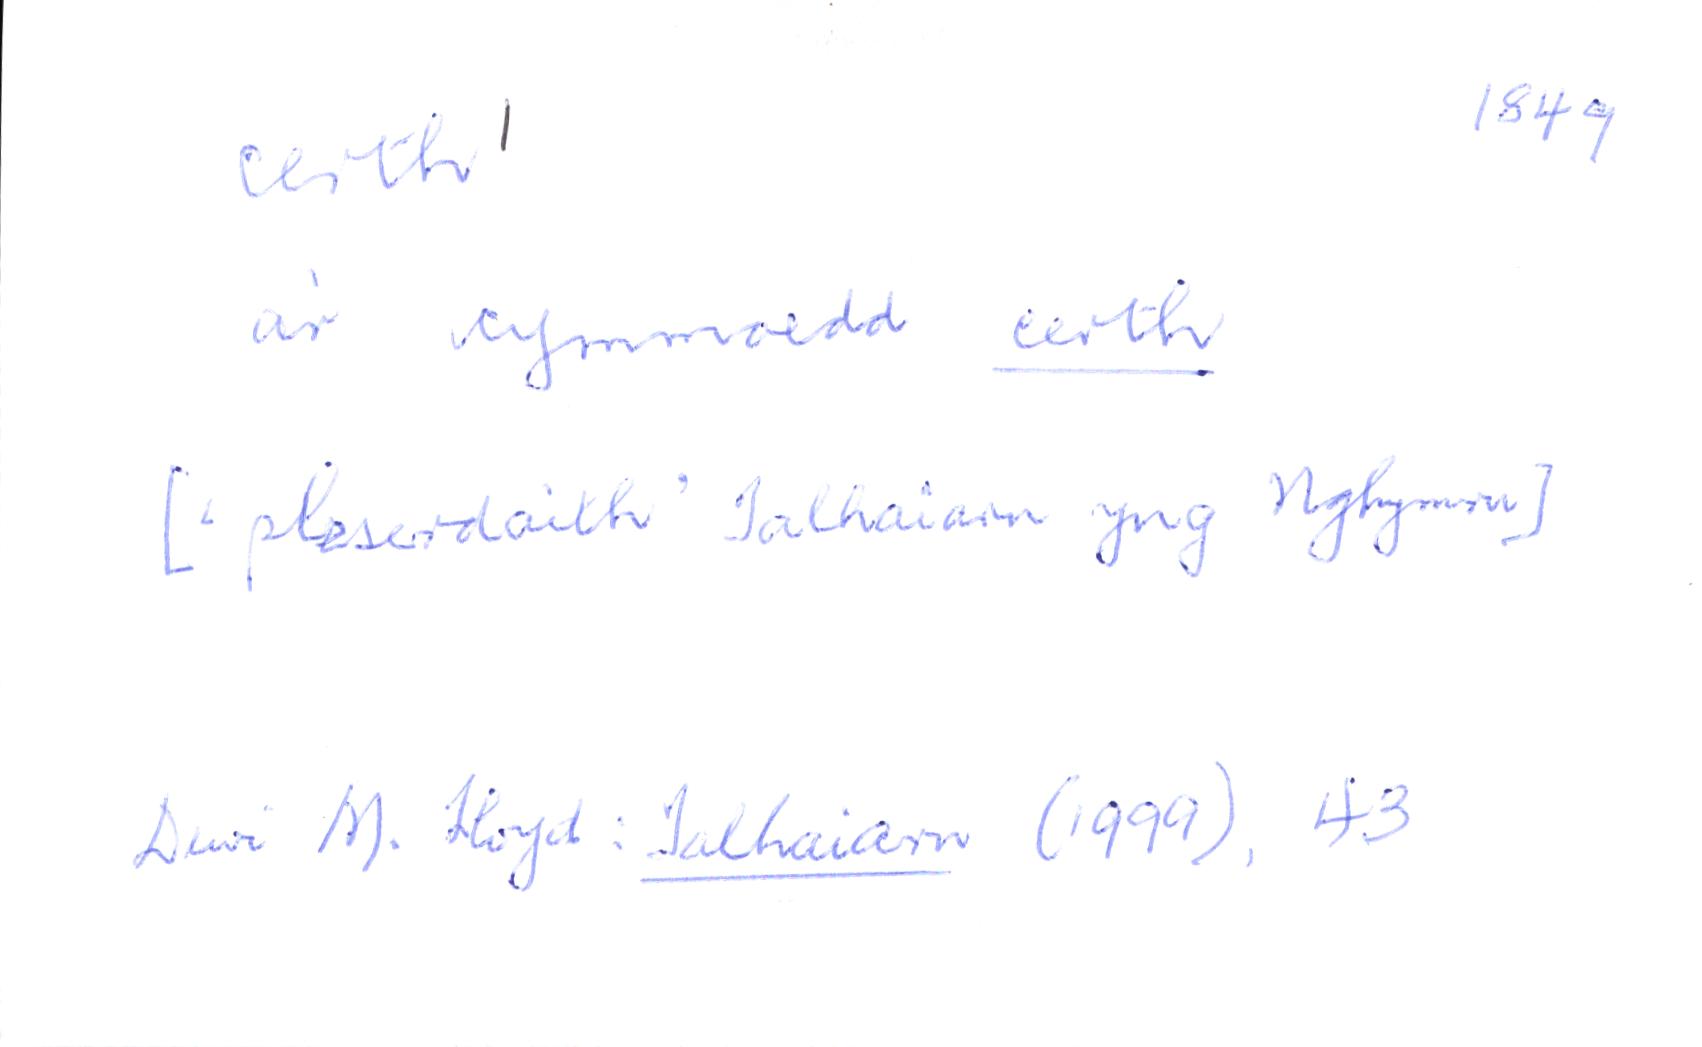 certh¹ 1849
a'r cymmoedd certh
['pleserdaith' Talhaiarn yng Nghymru]
Dewi M. Lloyd: Talhaiarn (1999), 43